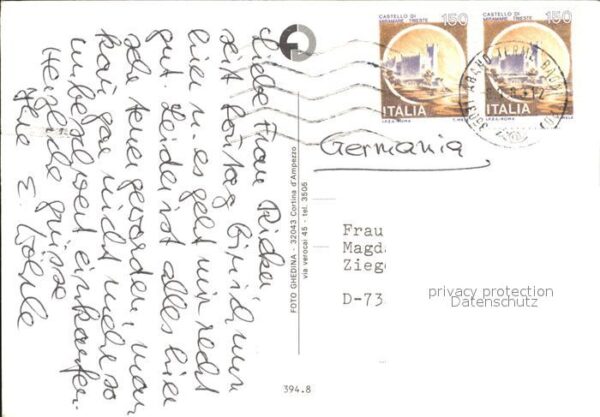 Liebe Frau Rieker
seit Sonntag bin ich nun
hier u. es geht mir recht
gut. Leider ist alles hier
sehr teuer geworden, man
kann gar nicht mehr so
unbeschwert einkaufen.
Herzliche Grüsse
Ihre E.
FOTO GHEDINA - 32043 Cortina d'Ampezzo
via verocai 45 - tel. 3506
CASTELLO DI
MIRAMARE · TRIESTE
150
ITALIA
I.P.Z.S.-ROMA
CASTELLO DI
MIRAMARE · TRIESTE
150
ITALIA
I.P.Z.S.-ROMA
ABANO TERME
Germania
Frau
Magd
Zieg
D-73
privacy protection
Datenschutz
394.8